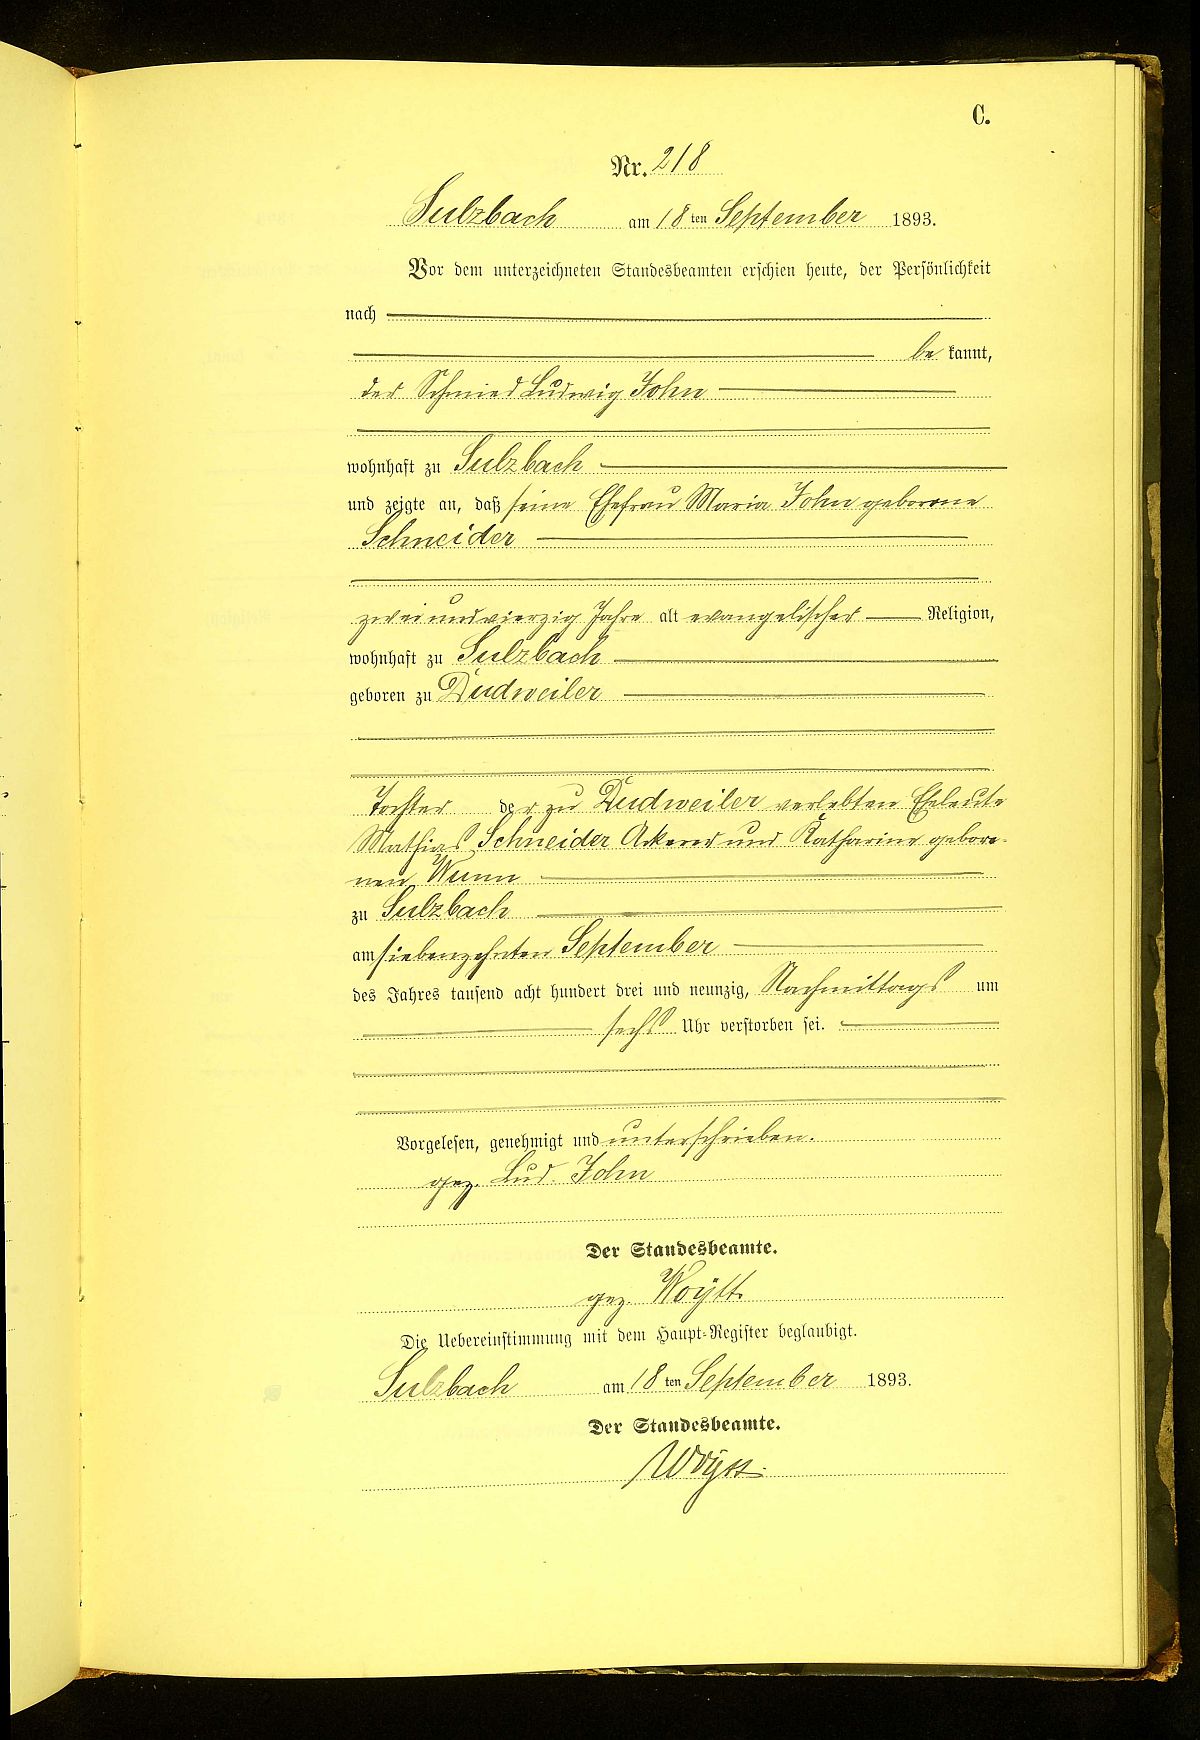 C.
Nr. 218
Sulzbach am 18 ten September 1893.
Vor dem unterzeichneten Standesbeamten erschien heute, der Persönlichkeit
nach
be kannt,
der Schmied Ludwig John
wohnhaft zu Sulzbach
und zeigte an, daß seine Ehefrau Maria John geborene
Schneider
zwei und vierzig Jahre alt evangelischer Religion,
wohnhaft zu Sulzbach
geboren zu Dudweiler
Tochter der zu Dudweiler verlebten Eheleute
Mathias Schneider Ackerer und Katharina gebore-
nen Wunn
zu Sulzbach
am siebenzehnten September
des Jahres tausend acht hundert drei und neunzig, Nachmittags um
sechs Uhr verstorben sei.
Vorgelesen, genehmigt und unterschrieben.
gez. Lud. John
Der Standesbeamte.
gez. Woÿtt
Die Uebereinstimmung mit dem Haupt-Register beglaubigt.
Sulzbach am 18 ten September 1893.
Der Standesbeamte.
Woÿtt